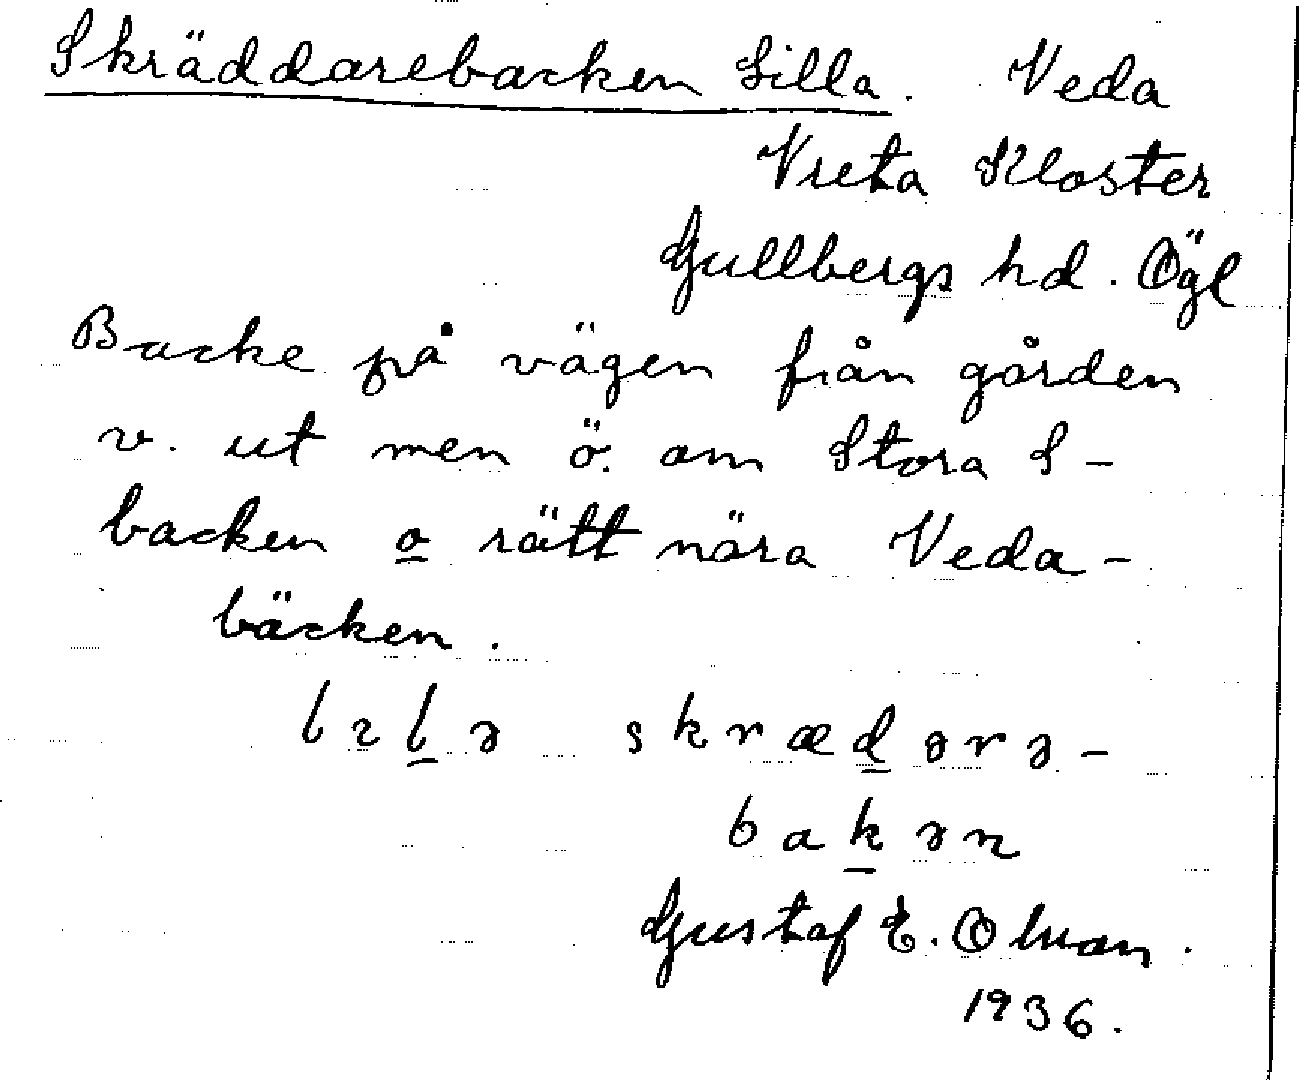 Skräddarebacken Lilla. Veda
Vreta Kloster
Gullbergs hd. Ögl
Backe på vägen från gården
v. ut men ö. om Stora S-
backen o rätt nära Veda-
bäcken.
lɩlə skrædərə-
bakən
Gustaf E. Olman.
1936.